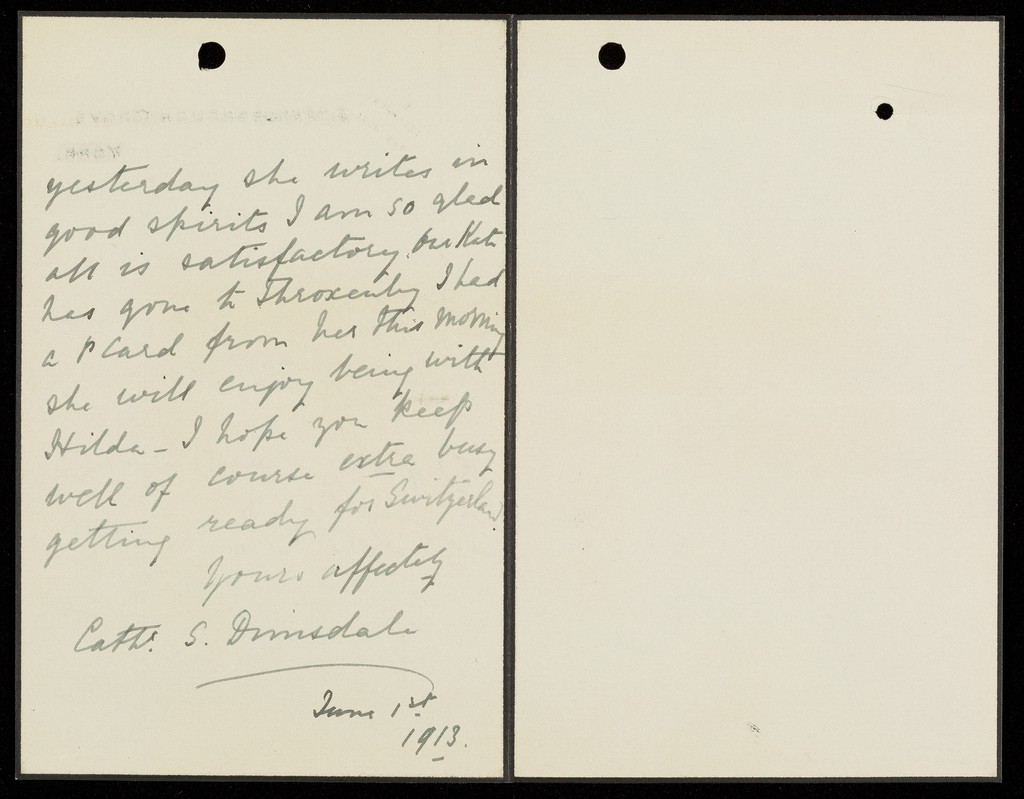 yesterday she writes in
good spirits I am so glad
all is satisfactory. Our Kate
has gone to Throxenby I had
a P Card from her this morning
she will enjoy being with
Hilda - I hope you keep
well of course extra busy
getting ready for Switzerland
Yours affectly
Cathe. S. Dimsdale
June 1st
1913.